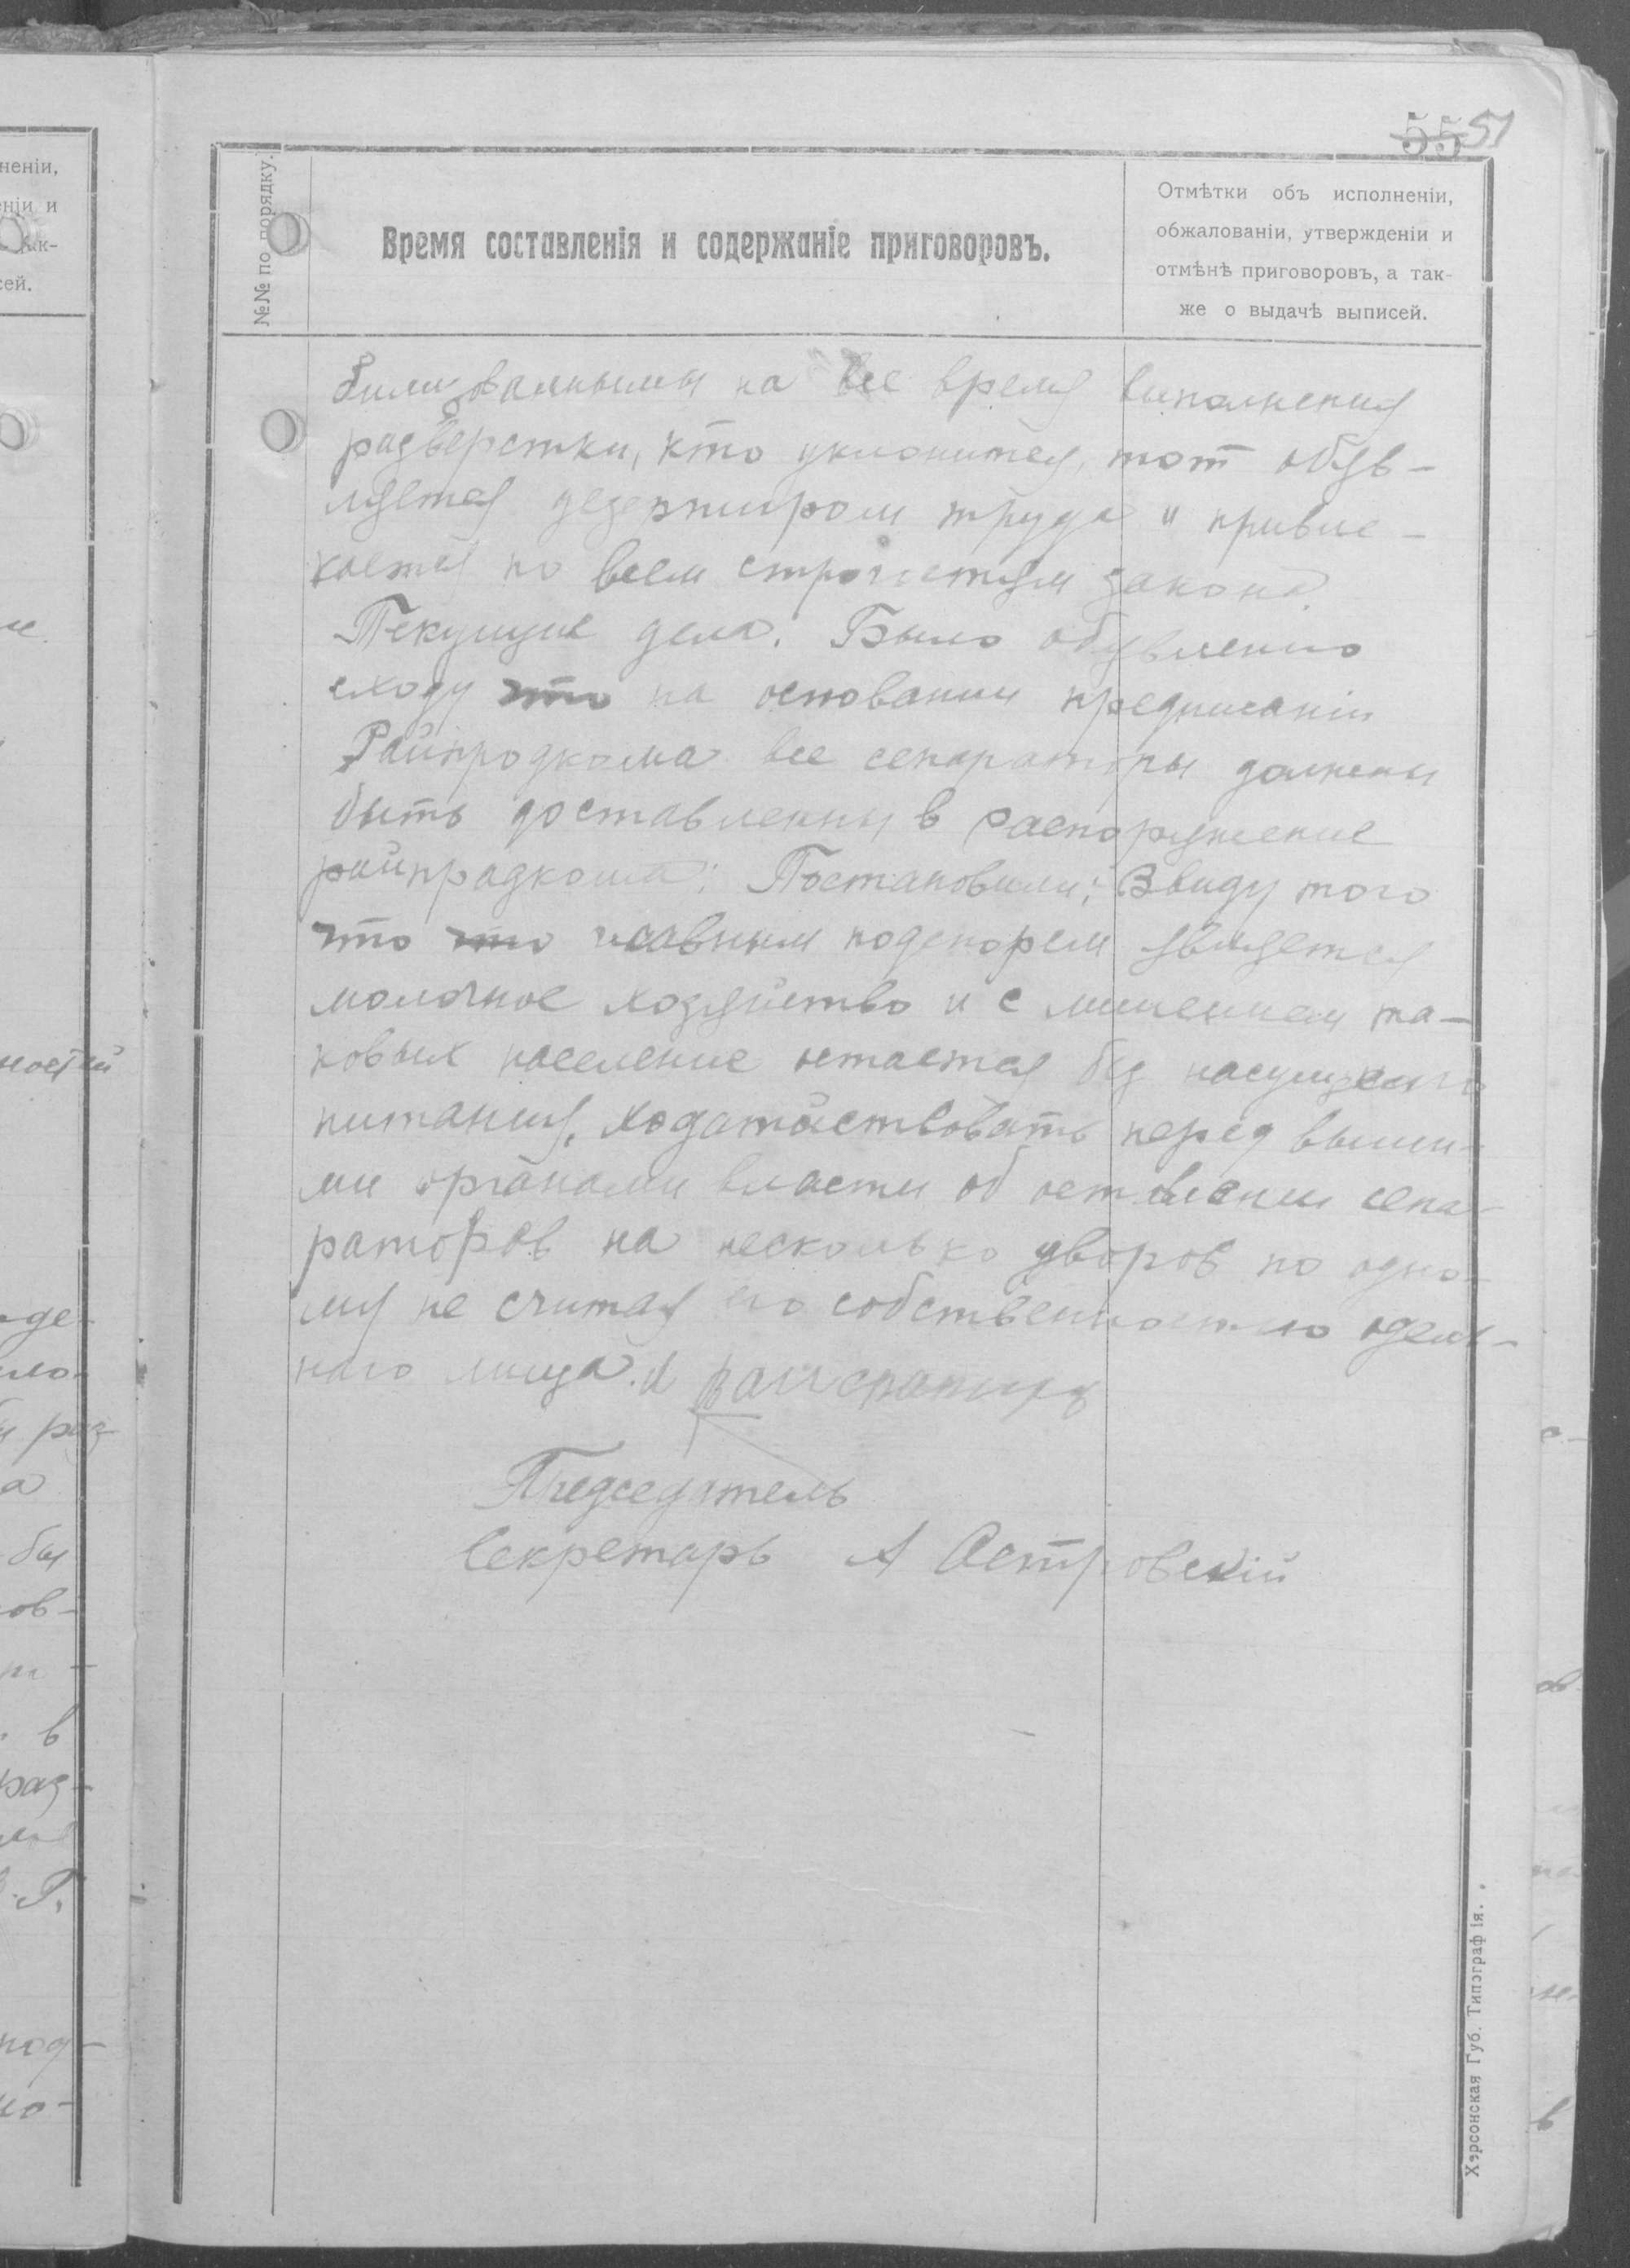 55 51
№№ по порядку.
Время составленія и содержаніе приговоровъ.
Отмѣтки объ исполненіи,
обжалованіи, утвержденіи и
отмѣнѣ приговоровъ, а так-
же о выдачѣ выписей.
билизованными на все время выполнения
разверстки, кто уклонится, тот обяв-
ляется дезертиром труда и привле-
кается по всем строгостям закона.
Текущие дела. Было обявленно
сходу что на основании предписаніи
Райпродкома все сепараторы должны
быть доставленны в распоряжение
райпрадкома: Постановили: Ввиду того
что что главным подспорем является
молочное хозяйство и с лишением та-
ковых население остается без насущного
питания, ходатайствовать перед высши-
ми органами власти об оставлении сепа-
раторов на несколько дворов по одно-
му не считая его собственностью одель-
наго лица. и
Председатель
Секретарь А Астровскій
Херсонская Губ. Типографія.